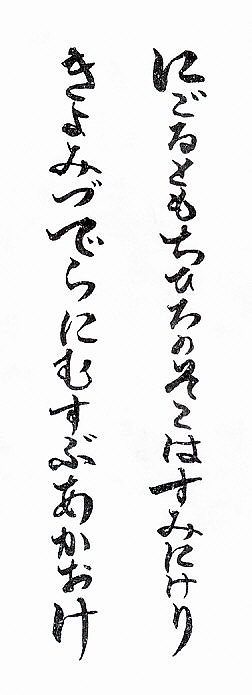 にごるともちひろのそこはすみにけり
きよみづでらにむすぶあかおけ